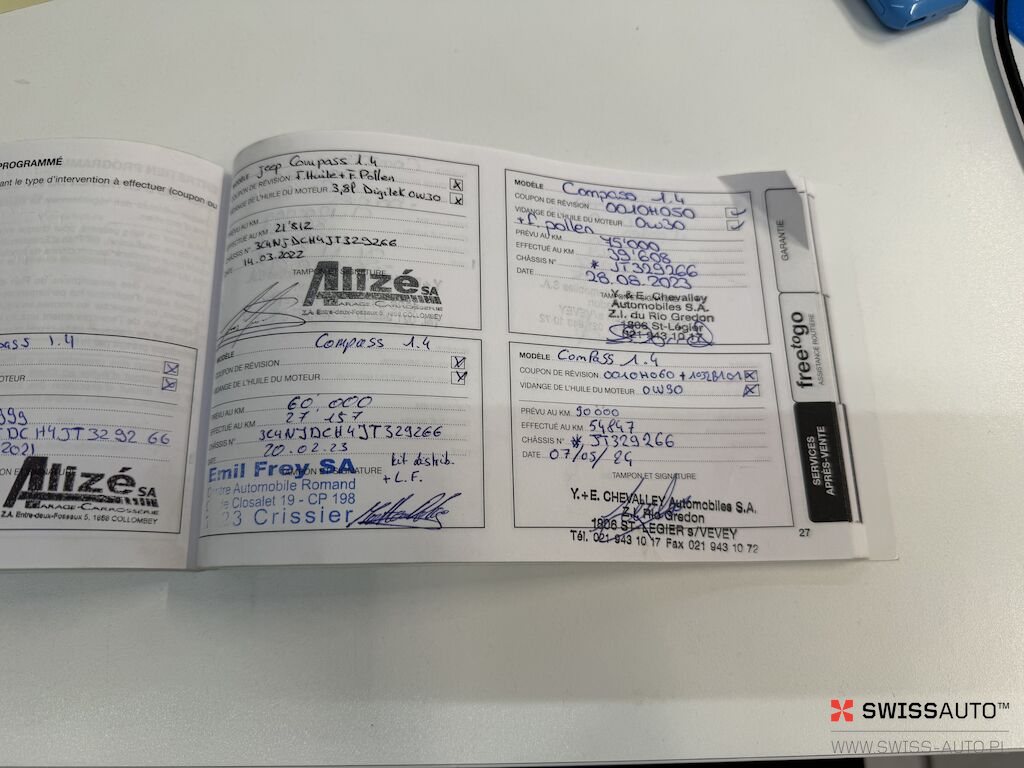 PROGRAMMÉ
ant le type d'intervention à effectuer (coupon ou
pass 1.4
OTEUR
999
DCH4JT3292 66
2021
ON ET SIGNATURE
Alizé SA
GARAGE-CARROSSERIE
Z.A. Entre-deux-Fosseaux 5, 1868 COLLOMBEY
MODÈLE Jeep Compass 1.4
COUPON DE RÉVISION F.Huile + F. Pollen
VIDANGE DE L'HUILE DU MOTEUR 3,8l Digitek 0W30
PRÉVU AU KM
EFFECTUÉ AU KM 21'812
CHÂSSIS N° 3C4NJDCH4JT329266
DATE 14.03.2022
TAMPON ET SIGNATURE
Alizé SA
GARAGE-CARROSSERIE
Z.A. Entre-deux-Fosseaux 5, COLLOMBEY
MODÈLE Compass 1.4
COUPON DE RÉVISION
VIDANGE DE L'HUILE DU MOTEUR
PRÉVU AU KM 60.000
EFFECTUÉ AU KM 27 157
CHÂSSIS N° 3C4NJDCH4JT329266
DATE 20.02.23
Emil Frey SA
TAMPON ET SIGNATURE
kit distrib.
+ L.F.
Centre Automobile Romand
Closalet 19 - CP 198
1023 Crissier
MODÈLE Compass 1.4
COUPON DE RÉVISION 0010H050
VIDANGE DE L'HUILE DU MOTEUR 0W30
+ f. pollen
PRÉVU AU KM 75'000
EFFECTUÉ AU KM 39'608
CHÂSSIS N° * JT329266
DATE 28.08.2023
TAMPON ET SIGNATURE
Y. & E. Chevalley
Automobiles S.A.
Z.I. du Rio Gredon
1806 St-Légier
021 943 10 17
MODÈLE Compass 1.4
COUPON DE RÉVISION 0010H060 + 1032B101
VIDANGE DE L'HUILE DU MOTEUR 0W30
PRÉVU AU KM 90 000
EFFECTUÉ AU KM 54847
CHÂSSIS N° * JT329266
DATE 07/05/24
TAMPON ET SIGNATURE
Y.+E. CHEVALLEY Automobiles S.A.
Z.I. Rio Gredon
1806 ST-LEGIER s/VEVEY
Tél. 021 943 10 17 Fax 021 943 10 72
27
GARANTIE
freetogo
ASSISTANCE ROUTIÈRE
SERVICES
APRÈS-VENTE
SWISSAUTO™
WWW.SWISS-AUTO.PL